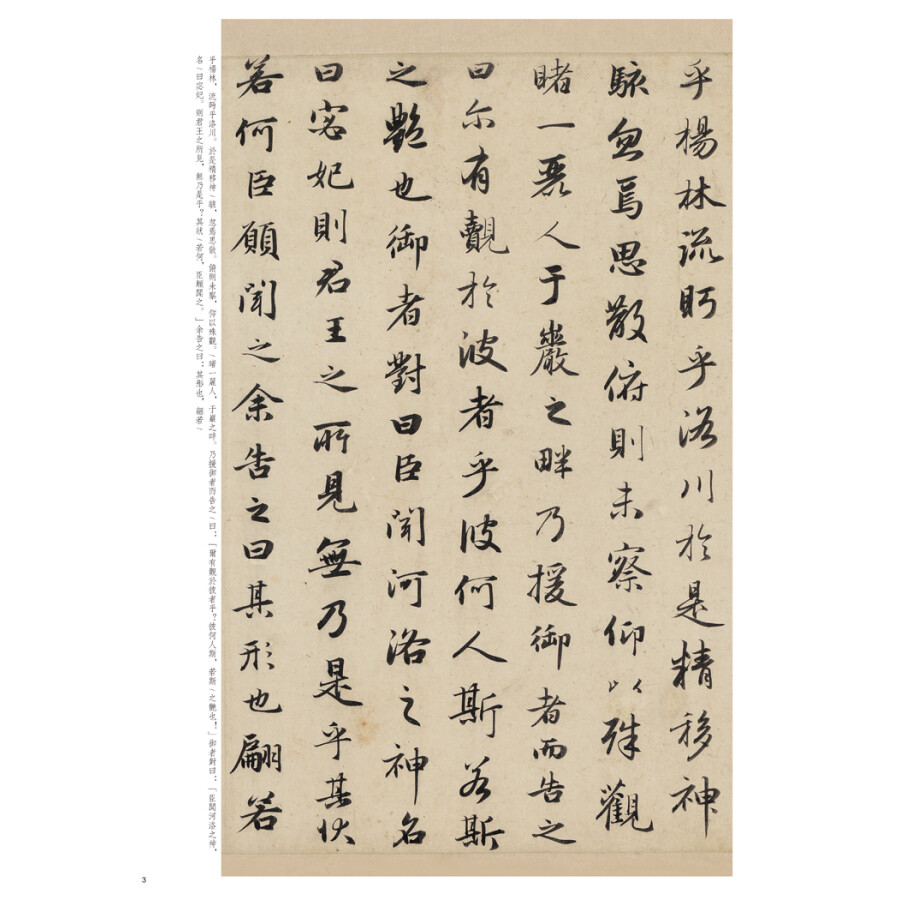 乎楊林流眄乎洛川於是精移神
駭忽焉思散俯則未察仰以殊觀
睹一麗人于巖之畔乃援御者而告之
曰尔有覿於彼者乎彼何人斯若斯
之艷也御者對曰臣聞河洛之神名
曰宓妃則君王之所見無乃是乎其狀
若何臣願聞之余告之曰其形也翩若
乎楊林，流眄乎洛川。於是精移神﹨駭，忽焉思散。俯則未察，仰以殊觀。﹨睹一麗人，于巖之畔。乃援御者而告之﹨曰：「爾有覿於彼者乎？彼何人斯，若斯﹨之艷也！」御者對曰：「臣聞河洛之神，
名﹨曰宓妃。則君王之所見，無乃是乎？其狀﹨若何，臣願聞之。」余告之曰：其形也，翩若﹨
3